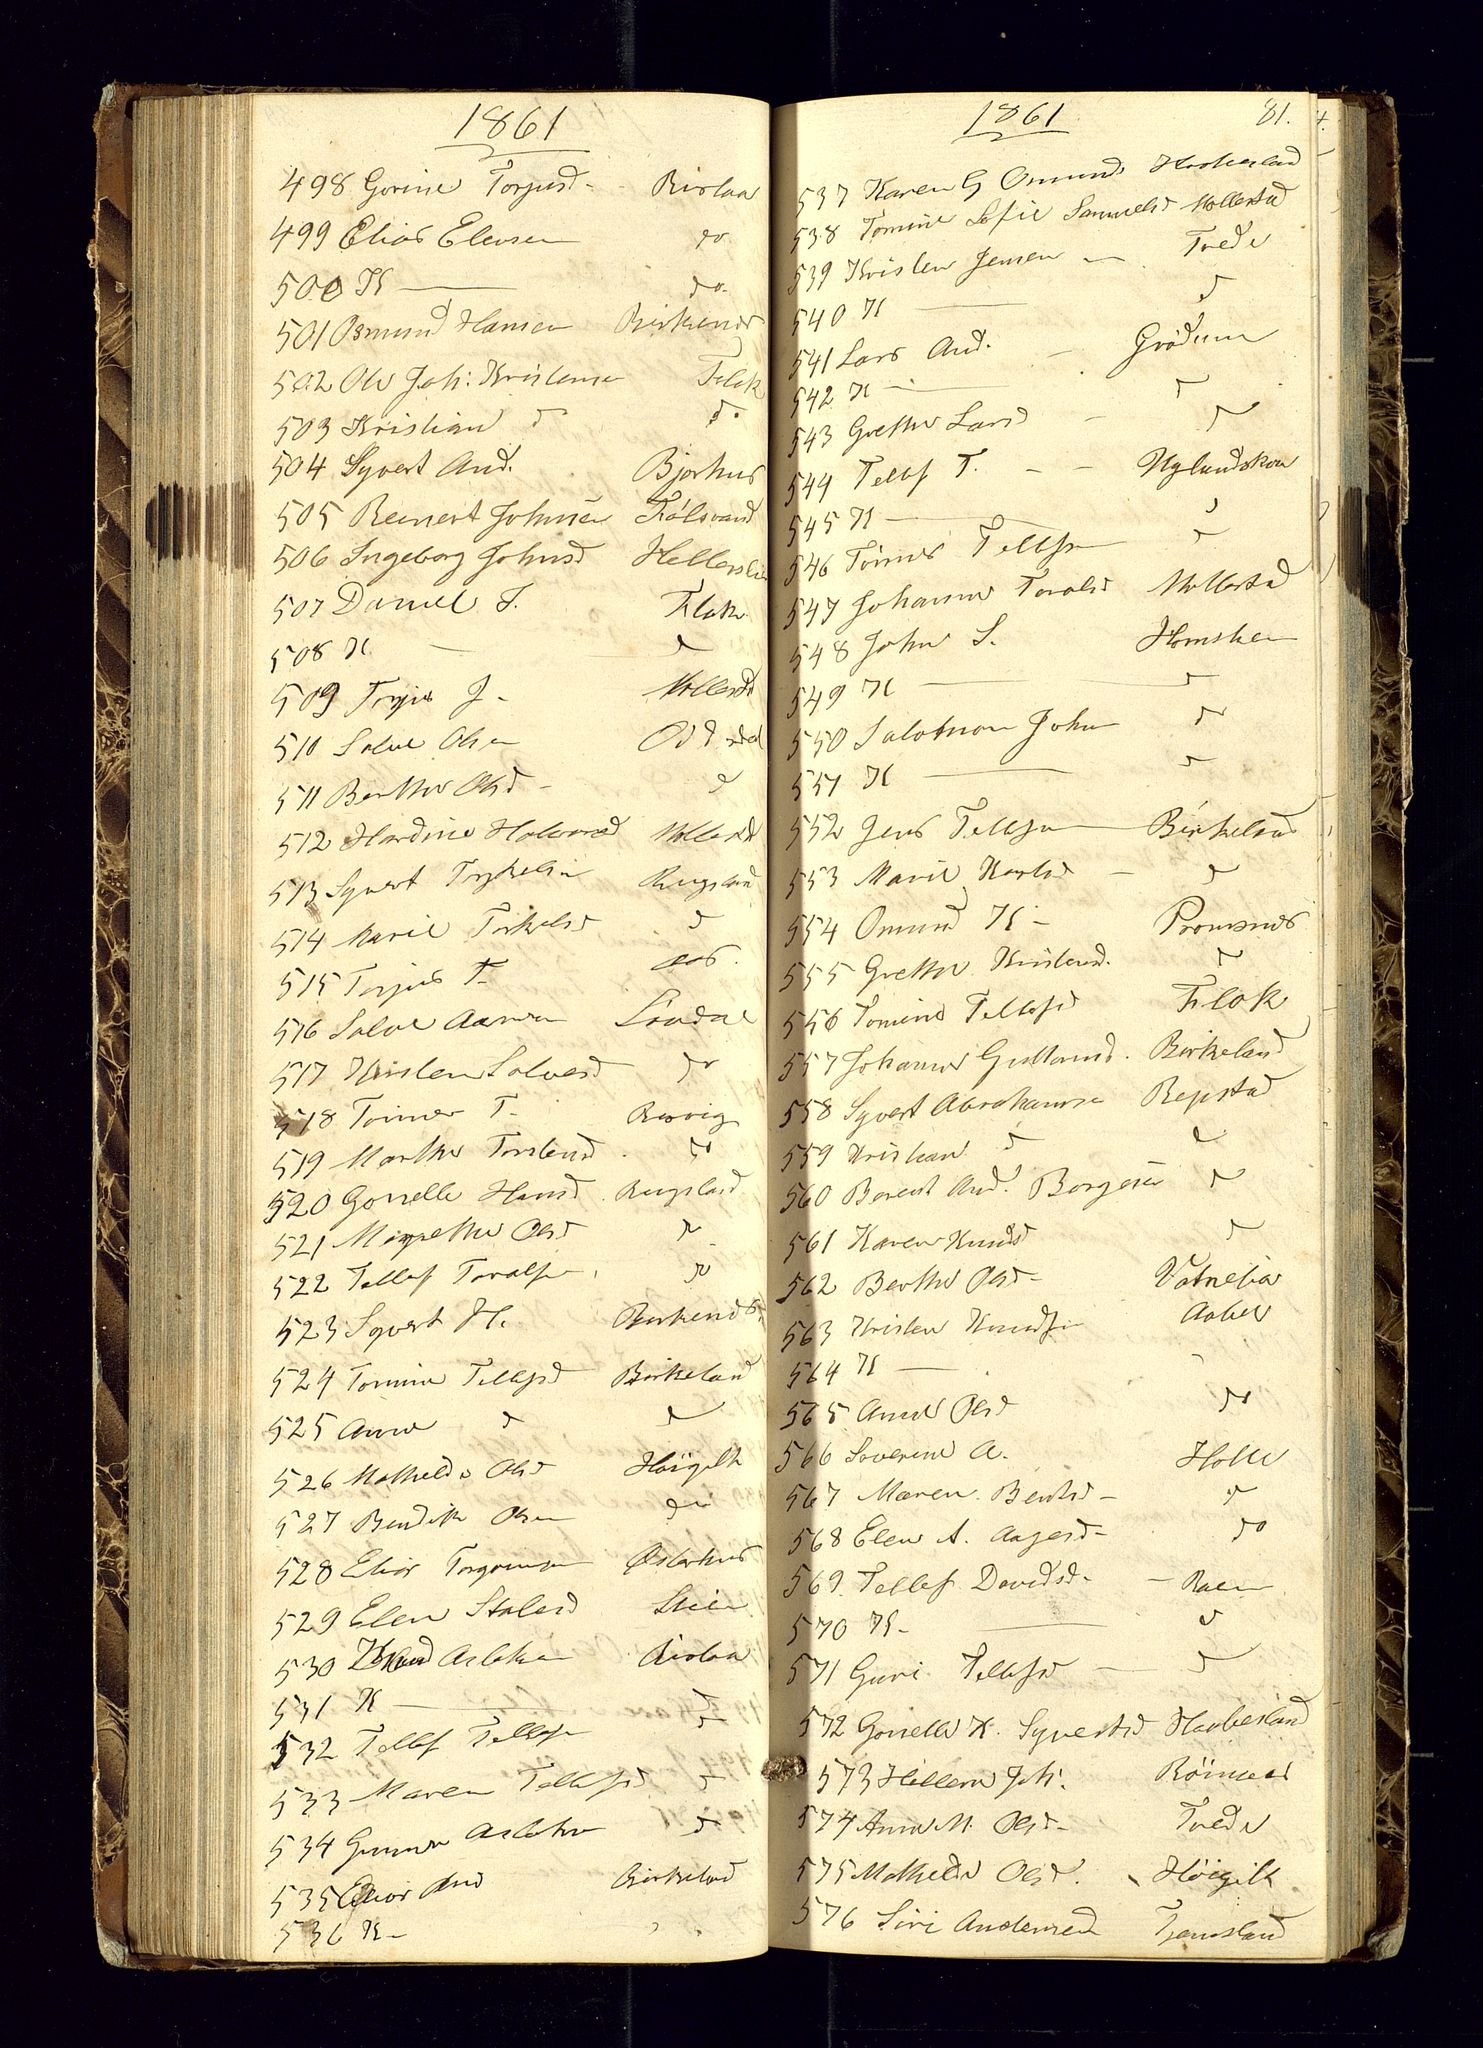 1861
498 Gorine Torjusd - Rislaa
499 Elias Elevsen do
500 K — do.
501 Osmund Hansen Birkenes
502 Ole Joh: Kristense Flak
503 Kristian d d.
504 Syvert And. Bjorkus
505 Reinert Johnsen Fölsvand
506 Ingeborg Johnsd Hellerslia
507 Daniel T. Flak
508 K. — d
509 Torjus J - Mollestd
510 Salve Olsen Oddestøl
511 Berthe Olsd - d
512 Hardine Halvorsd Mollestd
513 Syvert Trykelsen Rugsland
514 Marie Torkelsd d
515 Torjus T. Aas.
516 Salve Aanen Soudal
517 Kristen Salvesd do
518 Tomes T. Røsvig
519 Marthe Torstensd do
520 Gonelle Hansd Rugsland
521 Margrethe Olsd do
522 Tellef Toralfsn do
523 Syvert H. Birkenes
524 Tomine Tellefsd Birkeland
525 Anne d d
526 Mathilde Olsd Höigilt
527 Bendik Olsen do
528 Elias Torgrimsen Østerhus
529 Elen Stalesd Stien
530 Knud Aslaksen Rislaa
531 K — d
532 Tellef Tellefsn d
533 Maren Tellefsd d
534 Gunner Aslaksn d
535 Elias And Birkelad
536 K -
1861 81.
537 Karen G Omunds
538 Tomine Sofie Samuelsd Mollestad
539 Kristen Jensen — Tvede
540 K — d
541 Lars And. — Grödum
542 K — d
543 Grethe Larsd - d
544 Tellef T. - - Uglandskaa
545 K — d
546 Tomes Tellefsn d
547 Johanne Toralsd Mollestad
548 John S. Homsken
549 K — d
550 Salomon John d
551 K — d
552 Jens Tellefsen Birkeland
553 Marie Karlsd — d
554 Omund K - Bromsnes
555 Grethe Kristensd. d
556 Tomine Tellefsd Flak
557 Johanne Guttormsd. Birkeland
558 Syvert Abrahamse Repstad
559 Kristian d d
560 Berent And. Borgesen d
561 Karen Knudsd d
562 Berthe Olsd - Vatnelia
563 Kristen Knudsen Aabel
564 K —
565 Anne Olsd do
566 Severine A. Holte
567 Maren Bentsd - d
568 Elen A. Aagesd - do
569. Tellef Davidsd. — Raen
570 K. — d
571 Guri Tellefsd — d
572 Gonelle K. Syvertsd Haabesland
573 Hellem Joh. Röinaas
574 Anne M. Olsd - Tvede
575 Mathilde Olsd. Höigilt
576 Siri Andersend Tjomsland